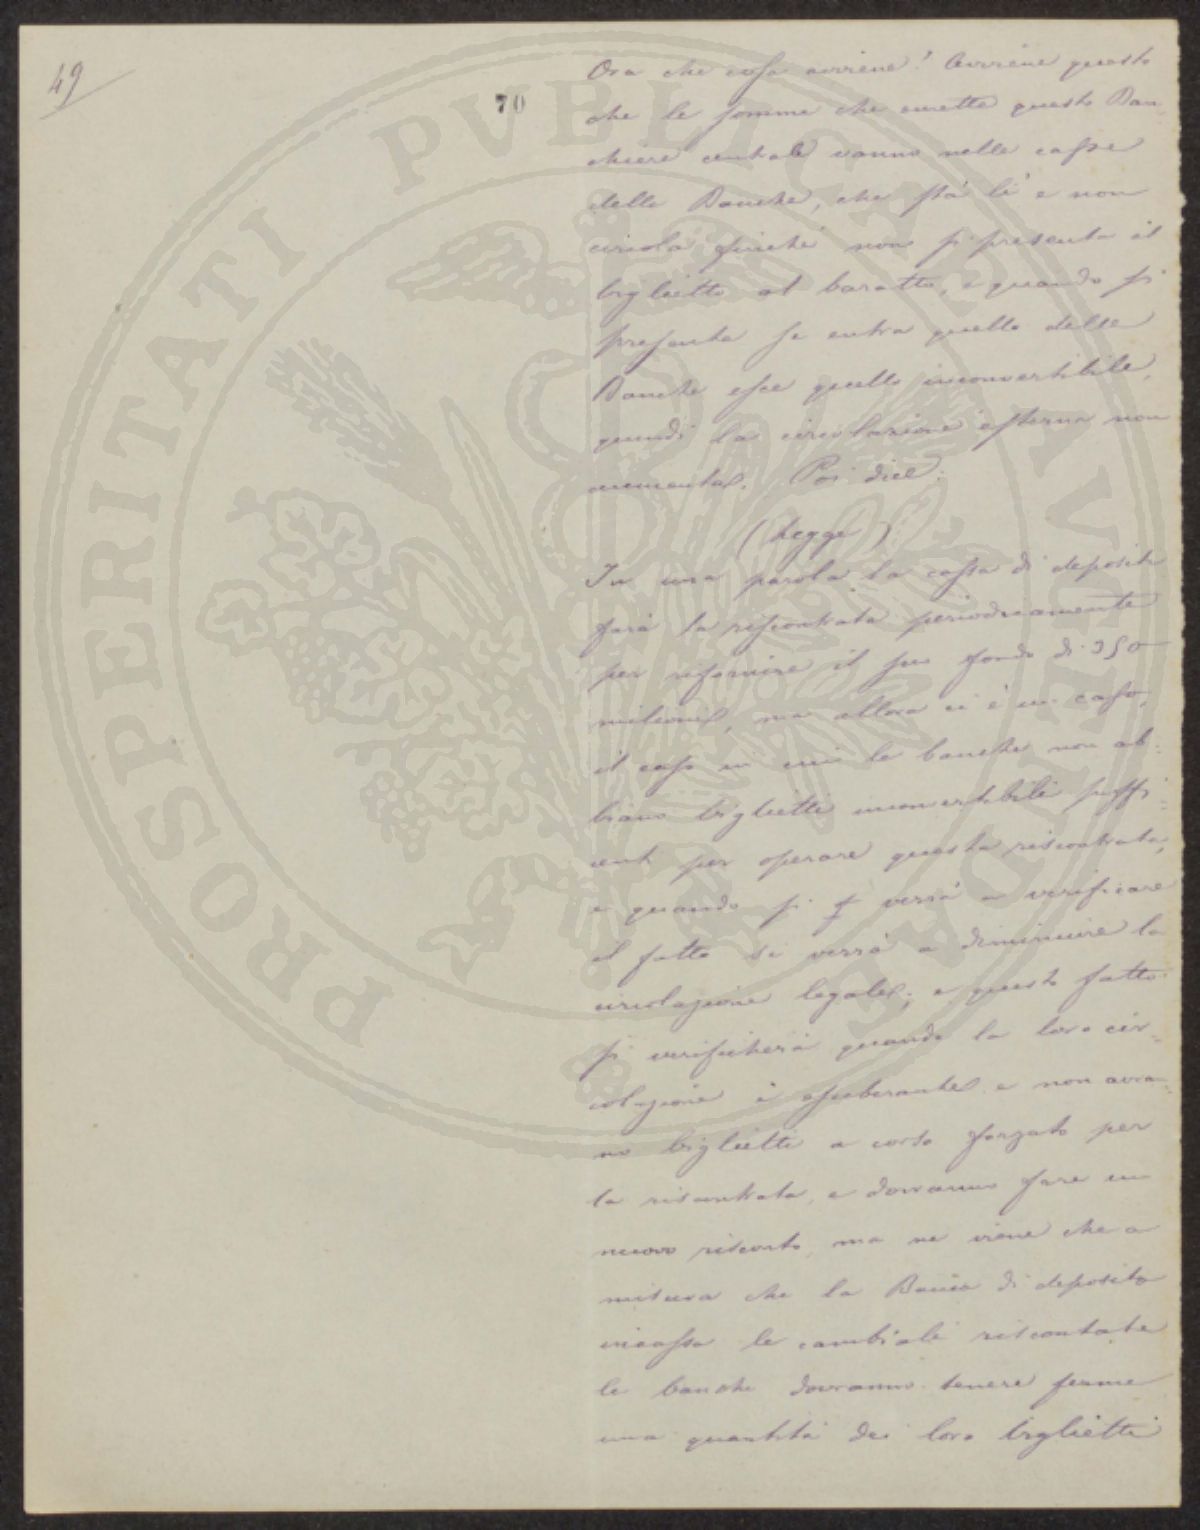 49
70
Ora che cosa avviene? Avviene questo
che le somme che emette questo Ban-
chiere centrale vanno nelle casse
delle Banche, che sta lì e non
circola finchè non si presenta il
biglietto al baratto, e quando si
presenta se entra quello delle
Banche esce quello inconvertibile,
quindi la circolazione esterna non
aumenta. Poi dice:
(Legge)
In una parola la cassa di depositi
farà la riscontrata periodicamente
per rifornire il suo fondo di 350
milioni, ma allora vi è un caso,
il caso in cui le banche non ab-
biano biglietti inconvertibili suffi-
centi per operare questa riscontrata,
e quando si verrà a verificare
il fatto si verrà a diminuire la
circolazione legale; e questo fatto
si verificherà quando la loro cir-
colazione è esuberante e non avran-
no biglietti a corso forzato per
la riscontrata, e dovranno fare un
nuovo risconto, ma ne viene che a
misura che la Banca di deposito
incassa le cambiali riscontate
le banche dovranno tenere ferme
una quantità dei loro biglietti
PROSPERITATI PVBLICAE AVGENDAE